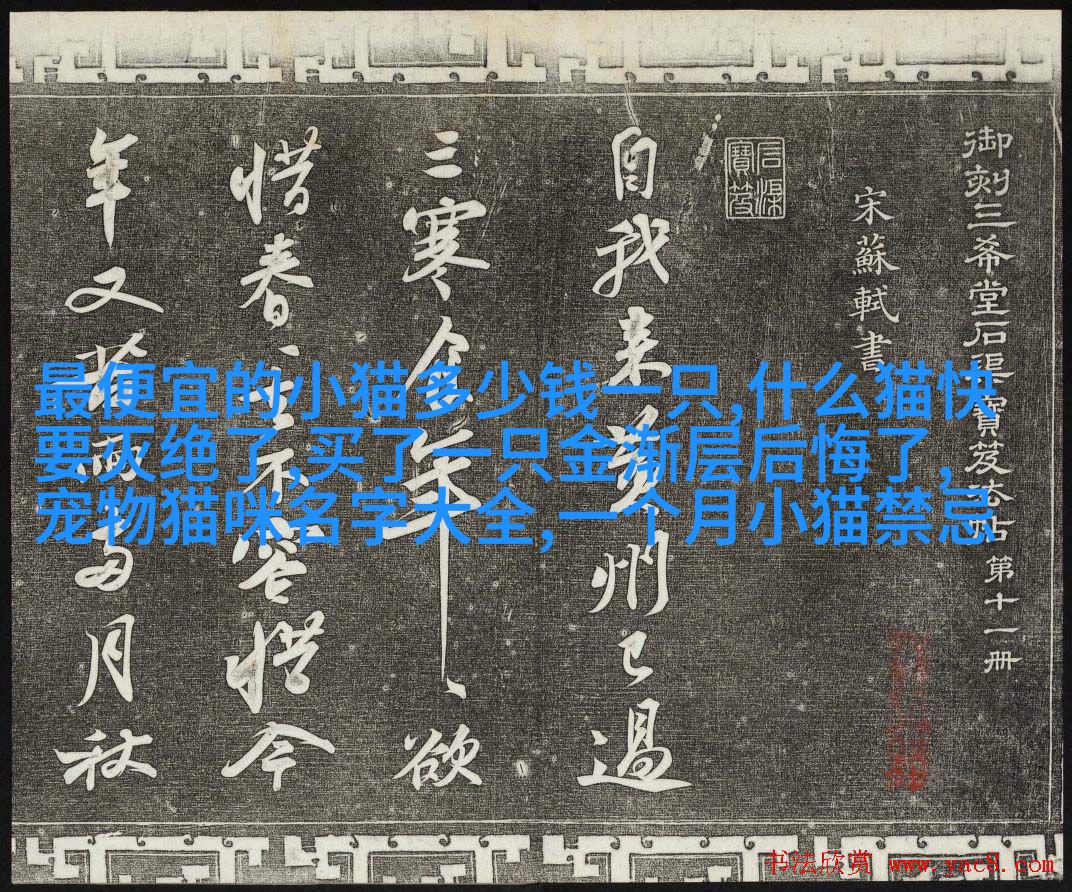 御刻三希堂石渠寶笈法帖第十一冊
宋蘇軾書
石渠寶笈
自我来黃州已過
三寒食年、欲
惜春、去不容惜今
年又苦雨兩月秋
最便宜的小猫多少钱一只,什么猫快
要灭绝了,买了一只金渐层后悔了,
宠物猫咪名字大全,一个月小猫禁忌
书法欣赏 www.yac8.com